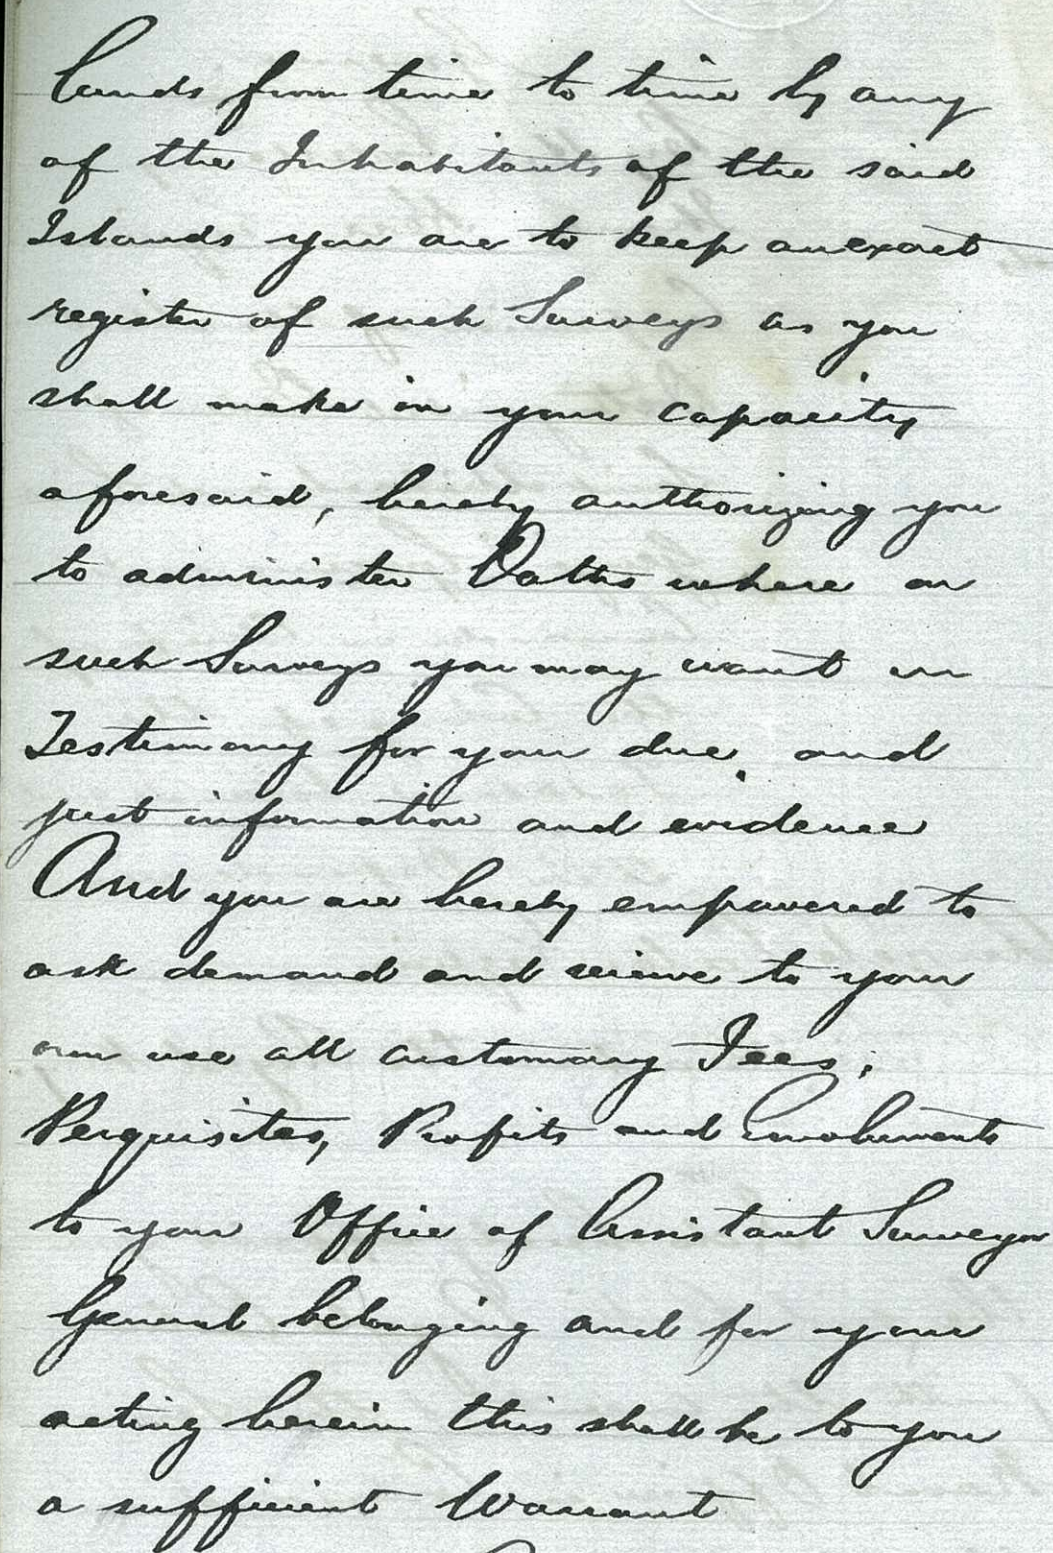 lands from time to time by any
of the Inhabitants of the said
Islands you are to keep an exact
register of such Surveys as you
shall make in your capacity
aforesaid, hereby authorizing you
to administer Oaths where on
such Surveys you may want in
Testimony for your due and
just information and evidence
And you are hereby empowered to
ask demand and recieve to your
own use all customary Fees,
Perquisites, Profits and Emoluments
to your Office of Assistant Surveyor
General belonging and for your
acting herein this shall be to you
a sufficient Warrant